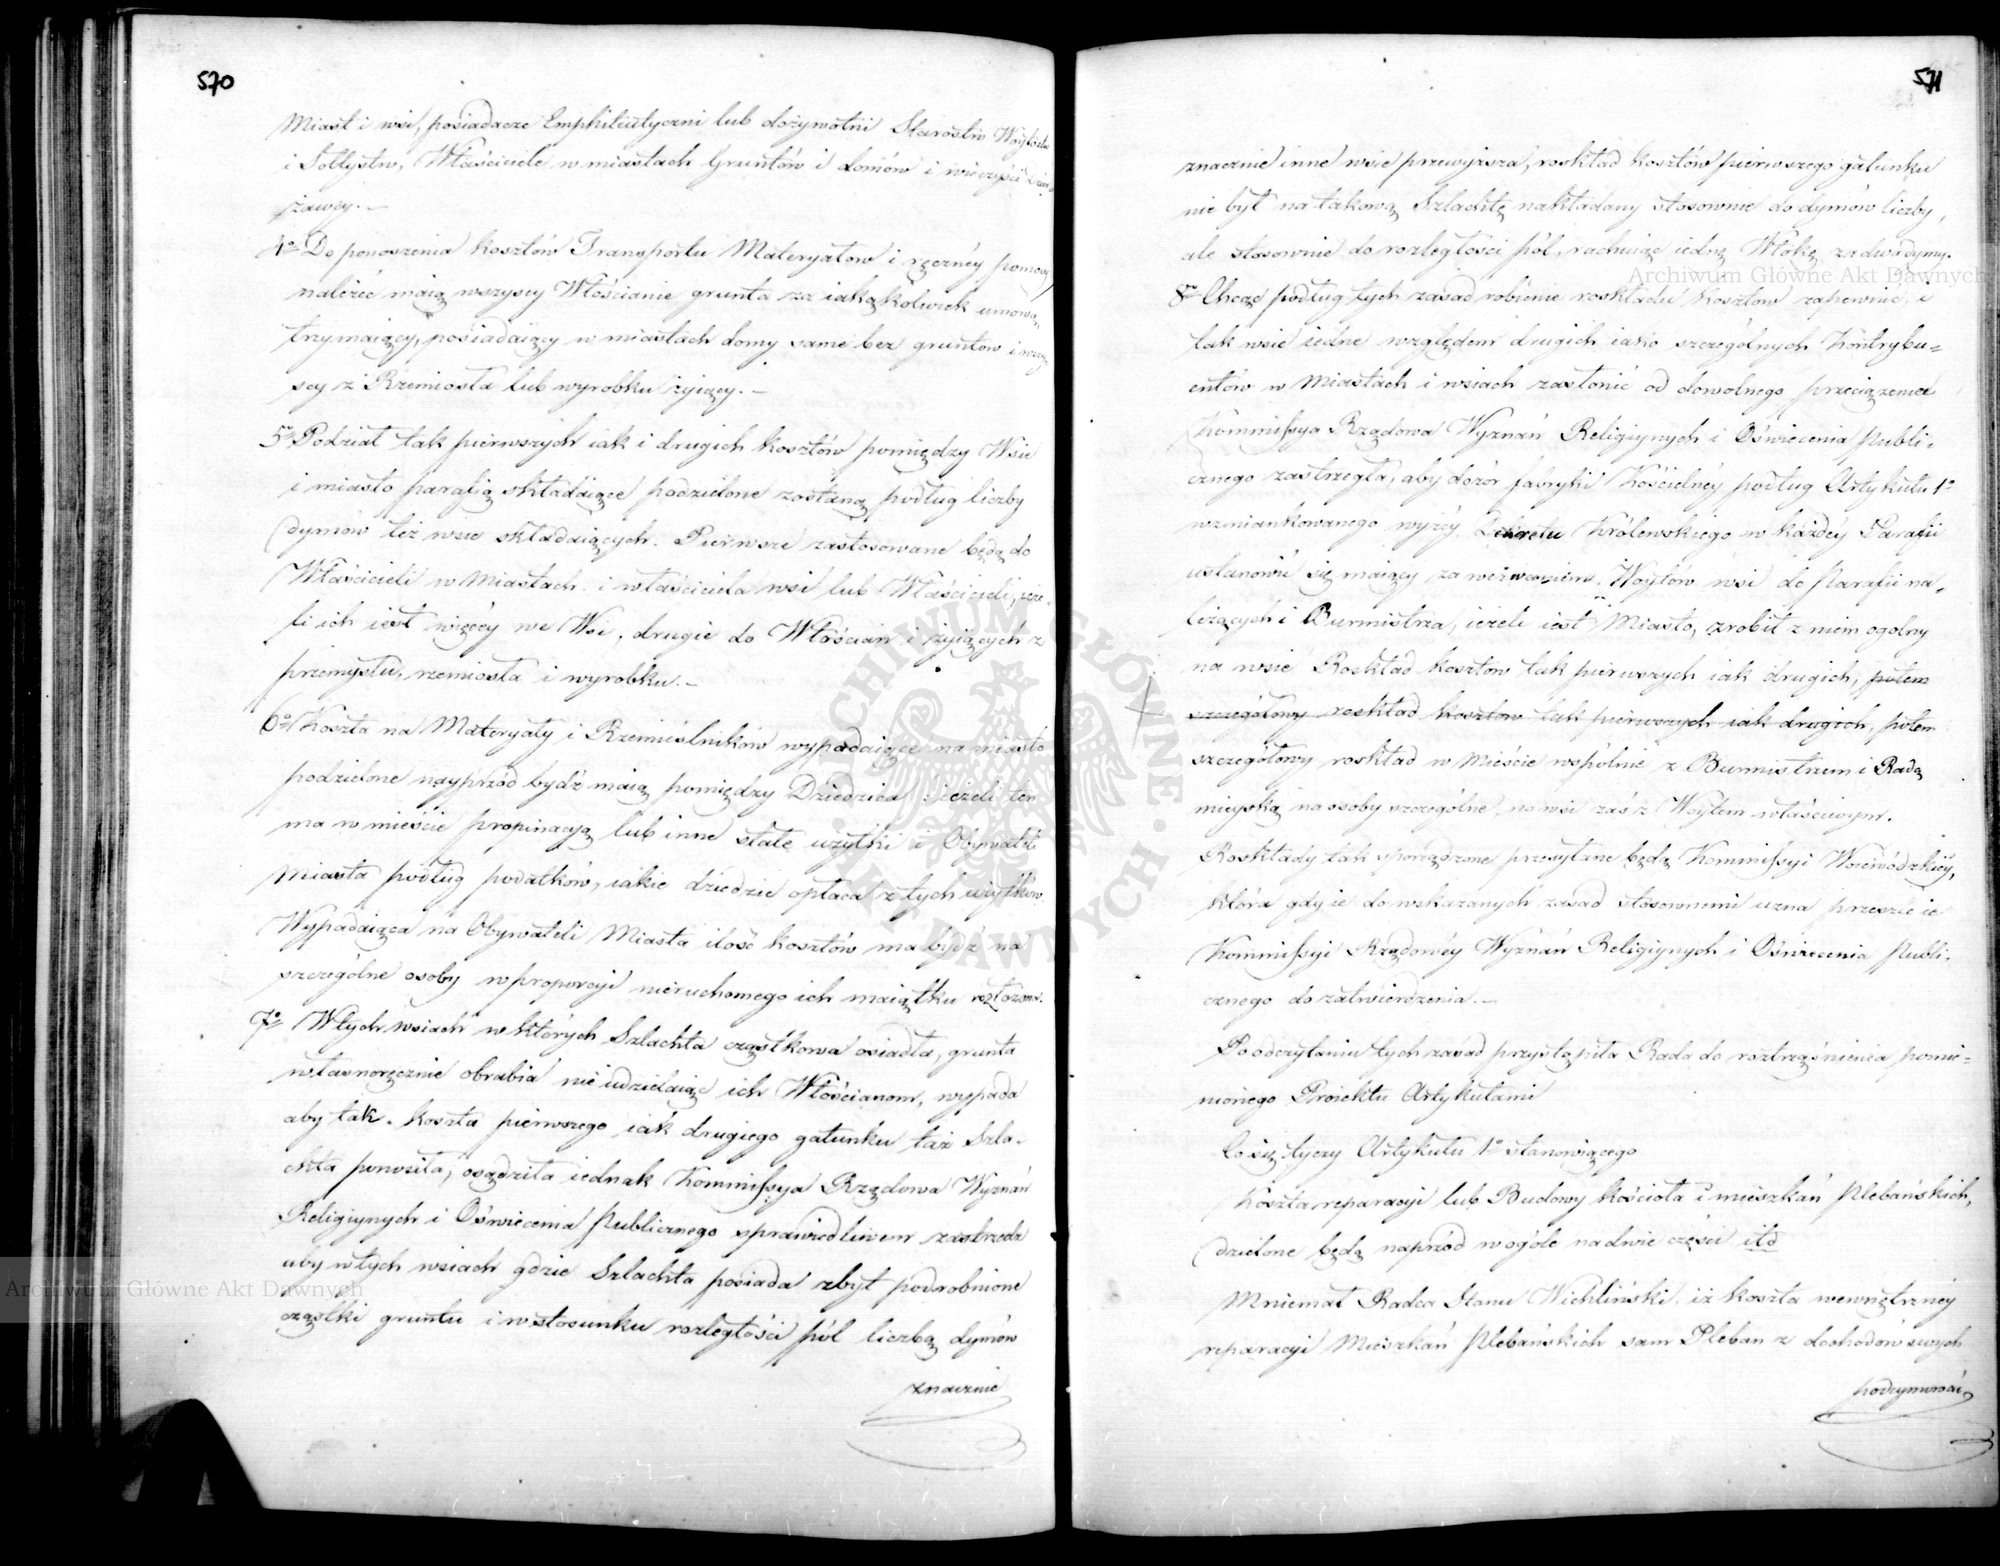 570
Miast i wsi, posiadacze Emphiteutyczni lub dożywotni Starostw Woytostw
i Sołtystw, Właściciele w miastach Gruntów i domów i wieczyści Dzier
żawcy. —
4o Do ponoszenia kosztów Transportu Materyałów i ręczney pomocy
należeć maią wszyscy Włościanie grunta za iakąkolwiek umową
trzymaiący, posiadaiący w miastach domy same bez gruntów i wszy
scy z Rzemiosła lub wyrobku żyiący. —
5o Podział tak pierwszych iak i drugich kosztów pomiędzy Wsie
i miasto parafią składaiące podzielone zostaną podług liczby
dymów też wsie składaiących. Pierwsze zastosowane będą do
Właścicieli w Miastach i właściciela wsi lub Właścicieli, ieże-
li ich iest więcey we Wsi, drugie do Włościan i żyiących z
przemysłu, rzemiosła i wyrobku. —
6o Koszta na Materyały i Rzemieślników wypadaiące na miasto
podzielone nayprzód bydź maią pomiędzy Dziedzica ieżeli ten
ma w mieście propinacyą lub inne stałe użytki i Obywateli
Miasta podług podatków, iakie dziedzic opłaca z tych użytków.
Wypadaiąca na Obywateli Miasta ilość kosztów ma być na
szczególne osoby w proporcyi nieruchomego ich maiątku rozłożona.
7o W tych wsiach w których Szlachta cząstkowa osiadła, grunta
własnoręcznie obrabia nie udzielaiąc ich Włościanom, wypada
aby tak koszta pierwszego iak drugiego gatunku taż Szla-
chta ponosiła, osądziła iednak Kommissya Rządowa Wyznań
Religiynych i Oświecenia Publicznego sprawiedliwem zastrzedz
aby w tych wsiach gdzie Szlachta posiada zbyt podrobnione
cząstki gruntu i w stosunku rozległości pól liczbą dymów
znacznie
571
znacznie inne wsie przewyższa, roskład kosztów pierwszego gatunku
nie był na takową Szlachtę nakładany stosownie do dymów liczby,
ale stosownie do rozległości pól, rachuiąc iednę Włókę za dwa dymy.
8o Chcąc podług tych zasad robienie roskładu kosztów zapewnić, i
tak wsie iedne względem drugich iako szczególnych Kontrybu-
entów w Miastach i wsiach zasłonić od dowolnego przeciążenia
Kommissya Rządowa Wyznań Religiynych i Oświecenia Publi-
cznego zastrzegła, aby dozór fabryki Kościelnéy podług Artykułu 1o
wzmiankowanego wyżéy Dekretu Królewskiego w każdéy Parafii
ustanowić się maiący za wezwaniem Woytów wsi do Parafii na-
leżących i Burmistrza, ieżeli iest Miasto, zrobił z niem ogolny
na wsie Roskład kosztów tak pierwszych iak drugich, potem
szczegółowy roskład kosztów tak pierwszych iak drugich, potem
szczegółowy roskład w Mieście wspólnie z Burmistrzem i Radą
mieyską na osoby szczególne, na wsi zaś z Woytem właściwym.
Roskłady tak sporządzone przesyłane będą Kommissyi Woiewódzkiéy,
która gdy ie do wskazanych zasad stosownemi uzna prześzle ie
Kommissyi Rządowéy Wyznań Religiynych i Oświecenia Publi-
cznego do zatwierdzenia. —
Po odczytaniu tych zasad przystąpiła Rada do roztrząśnienia pomie-
nionego Proiektu Artykułami
Co się tyczy Artykułu 1o stanowiącego
Koszta reparacyi lub Budowy kościoła i mieszkań Plebańskich,
dzielone będą naprzód w ogóle na dwie części itd
Mniemał Radca Stanu Wichliński, iż koszta wewnętrzney
reparacyi Mieszkań Plebańskich sam Pleban z dochodów swych
podeymować
Archiwum Główne Akt Dawnych
Archiwum Główne Akt Dawnych
ARCHIWUM GŁÓWNE AKT DAWNYCH